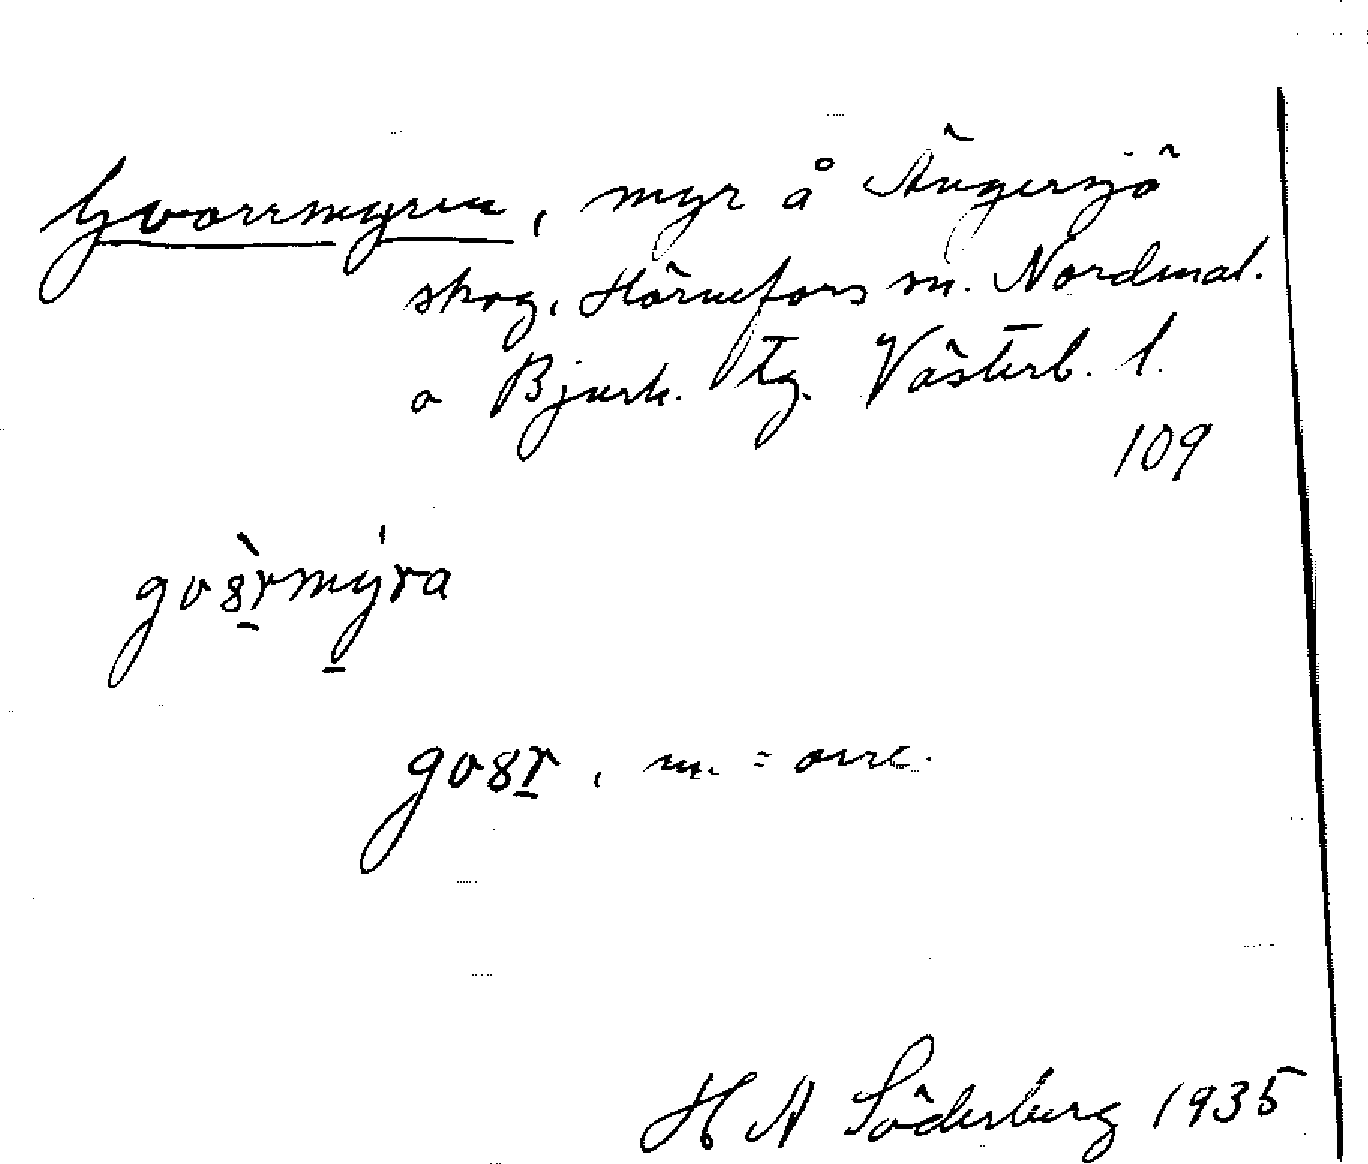 Gvorrmyren, myr å Ängersjö
skog, Hörnefors sn. Nordmal.
o Bjurh. tg. Västerb. l.
109
gv8̀rmýra
gv8r, m. = orre.
H A Söderberg 1935